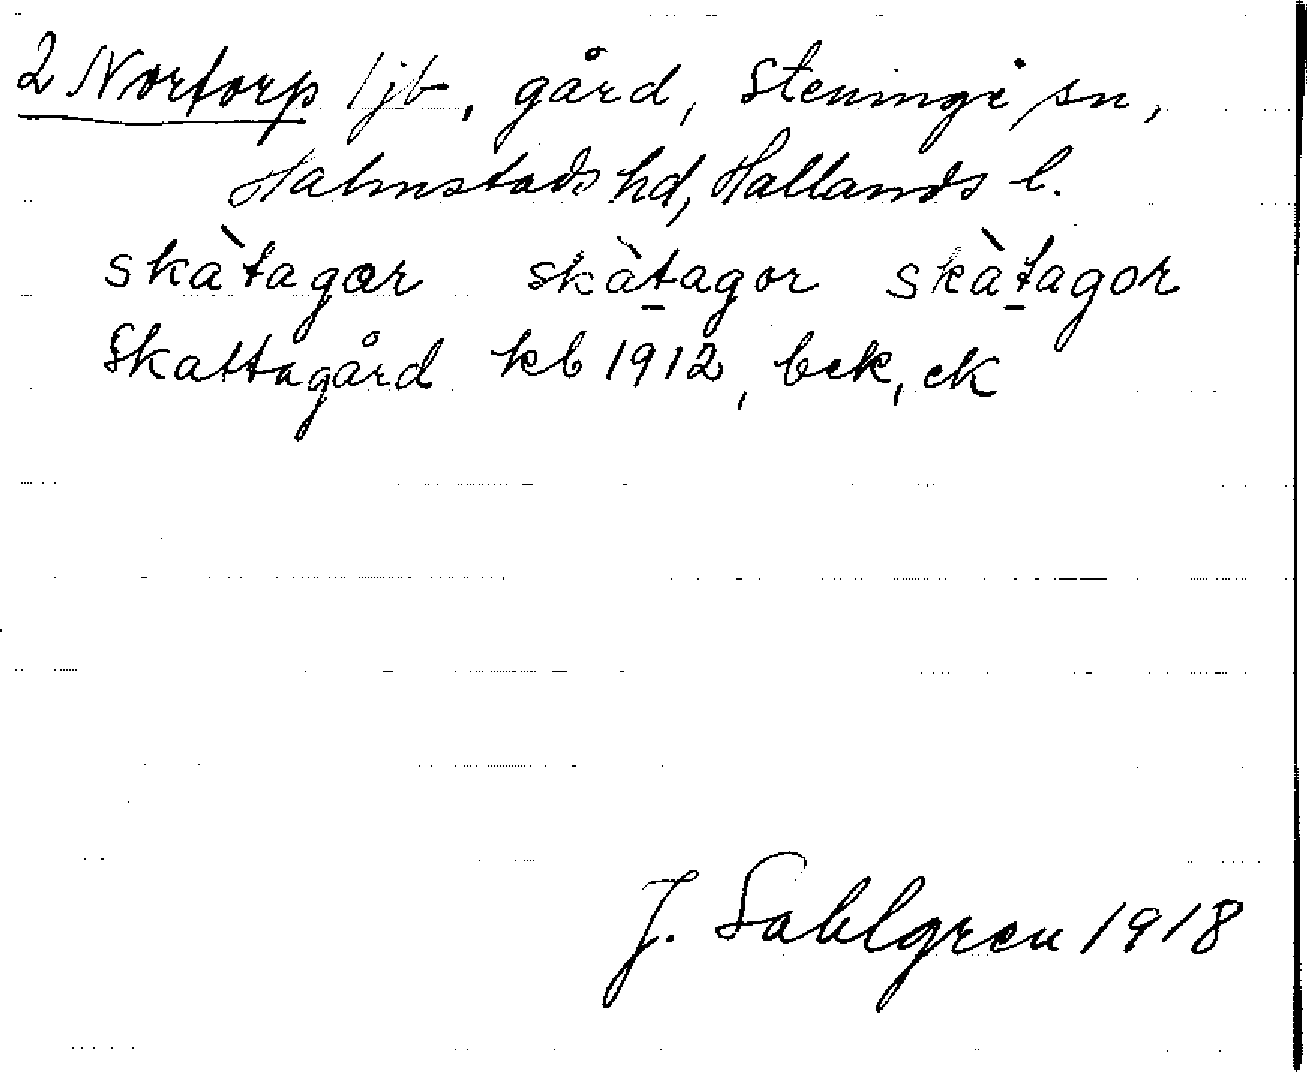 2 Nortorp ljb, gård, Steninge sn,
Halmstads hd, Hallands l.
skàtagær skàt̲agor skàt̲agor
Skattagård kb 1912, bek, ek
J. Sahlgren 1918